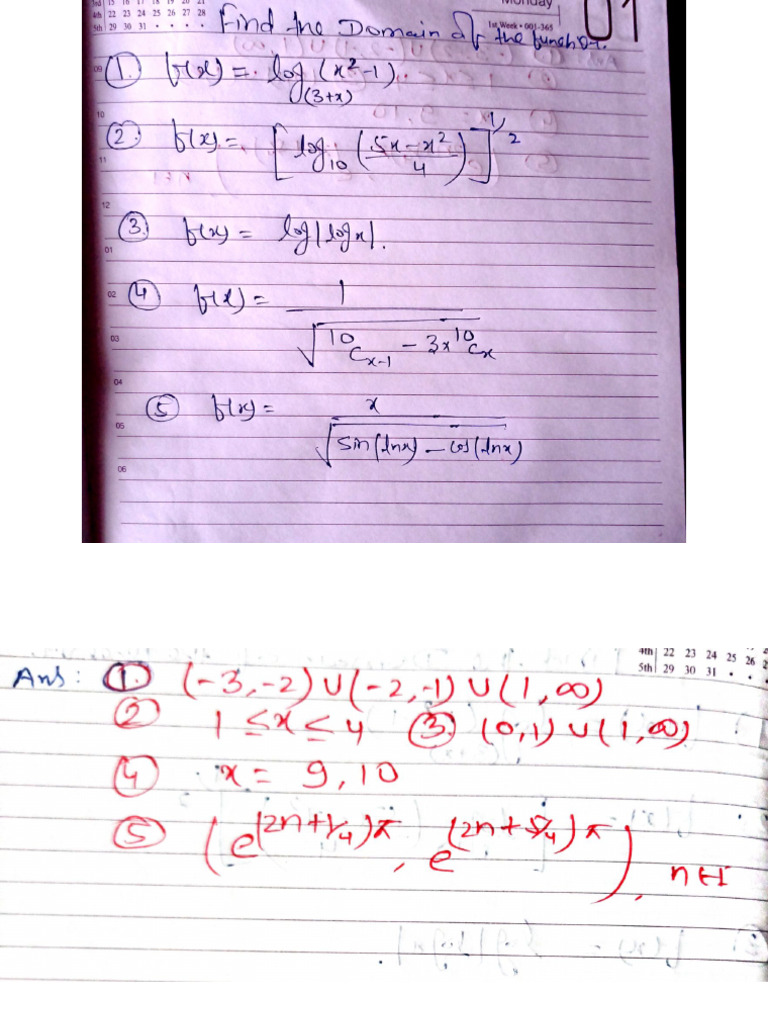 3rd 15 16 17 18 19 20 21
4th 22 23 24 25 26 27 28
5th 29 30 31 • • • •
Monday
1st Week • 001-365
01
Find the Domain of the function.
09
① f(x) = log(3+x) (x²-1).
10
② f(x) = [log₁₀ (5x-x²/4)]^1/2
11
12
③ f(x) = log|logx|.
01
02
④ f(x) = 1/√(¹⁰Cx-1 - 3x¹⁰Cx)
03
04
⑤ f(x) = x/√(sin(lnx) - cos(lnx))
05
06
4th 22 23 24 25 26
5th 29 30 31 • •
Ans: ① (-3,-2)∪(-2,-1)∪(1,∞)
② 1≤x≤4 ③ (0,1)∪(1,∞)
④ x = 9,10
⑤ (e^(2n+1/4)π, e^(2n+5/4)π), n∈I